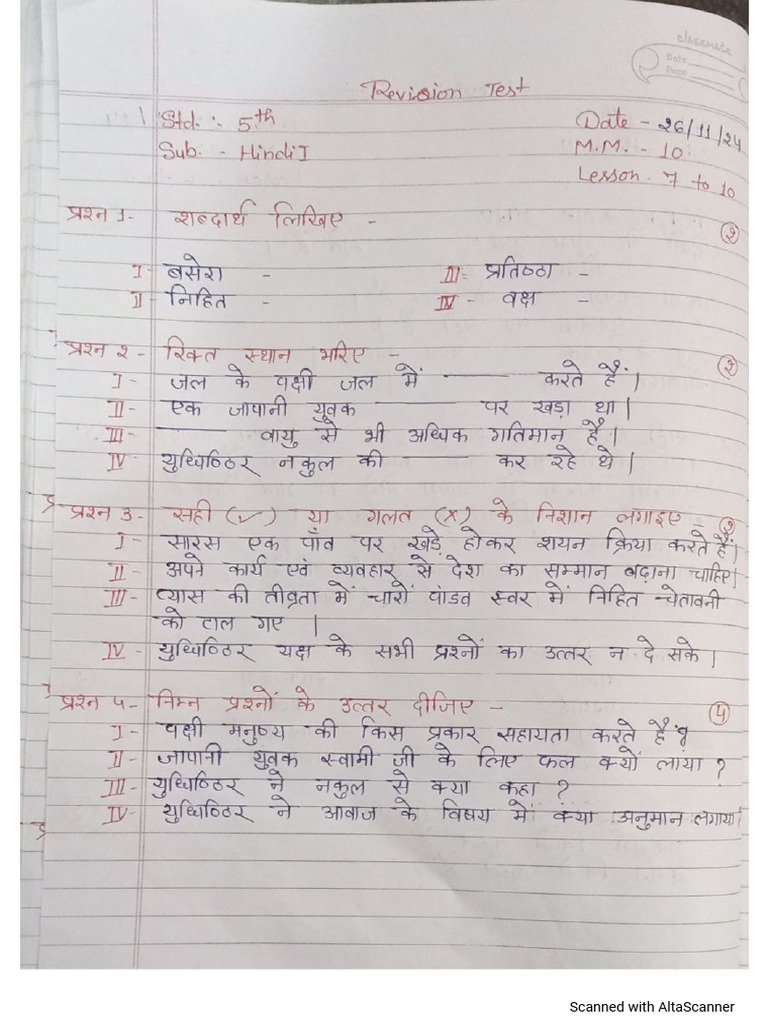 classmate
Date
Page
Revision Test
Std. :- 5th
Date - 26/11/24
Sub. - Hindi I
M.M. - 10
Lesson. 7 to 10
प्रश्न 1- शब्दार्थ लिखिए - २
I- बसेरा - III- प्रतिष्ठा -
II- निहित - IV - वक्ष -
प्रश्न २ - रिक्त स्थान भरिए - २
I- जल के पक्षी जल में ______ करते हैं।
II- एक जापानी युवक ______ पर खड़ा था।
III- ______ वायु से भी अधिक गतिमान है।
IV युधिष्ठिर नकुल की ______ कर रहे थे।
प्रश्न 3- सही (✓) या गलत (x) के निशान लगाइए -
I- सारस एक पाँव पर खड़े होकर शयन क्रिया करते हैं।
II- अपने कार्य एवं व्यवहार से देश का सम्मान बढ़ाना चाहिए।
III- प्यास की तीव्रता में चारों पांडव स्वर में निहित चेतावनी
को टाल गए।
IV- युधिष्ठिर यक्ष के सभी प्रश्नों का उत्तर न दे सके।
प्रश्न ४- निम्न प्रश्नों के उत्तर दीजिए - ४
I- पक्षी मनुष्य की किस प्रकार सहायता करते हैं?
II- जापानी युवक स्वामी जी के लिए फल क्यों लाया?
III- युधिष्ठिर ने नकुल से क्या कहा?
IV- युधिष्ठिर ने आवाज के विषय में क्या अनुमान लगाया।
Scanned with AltaScanner